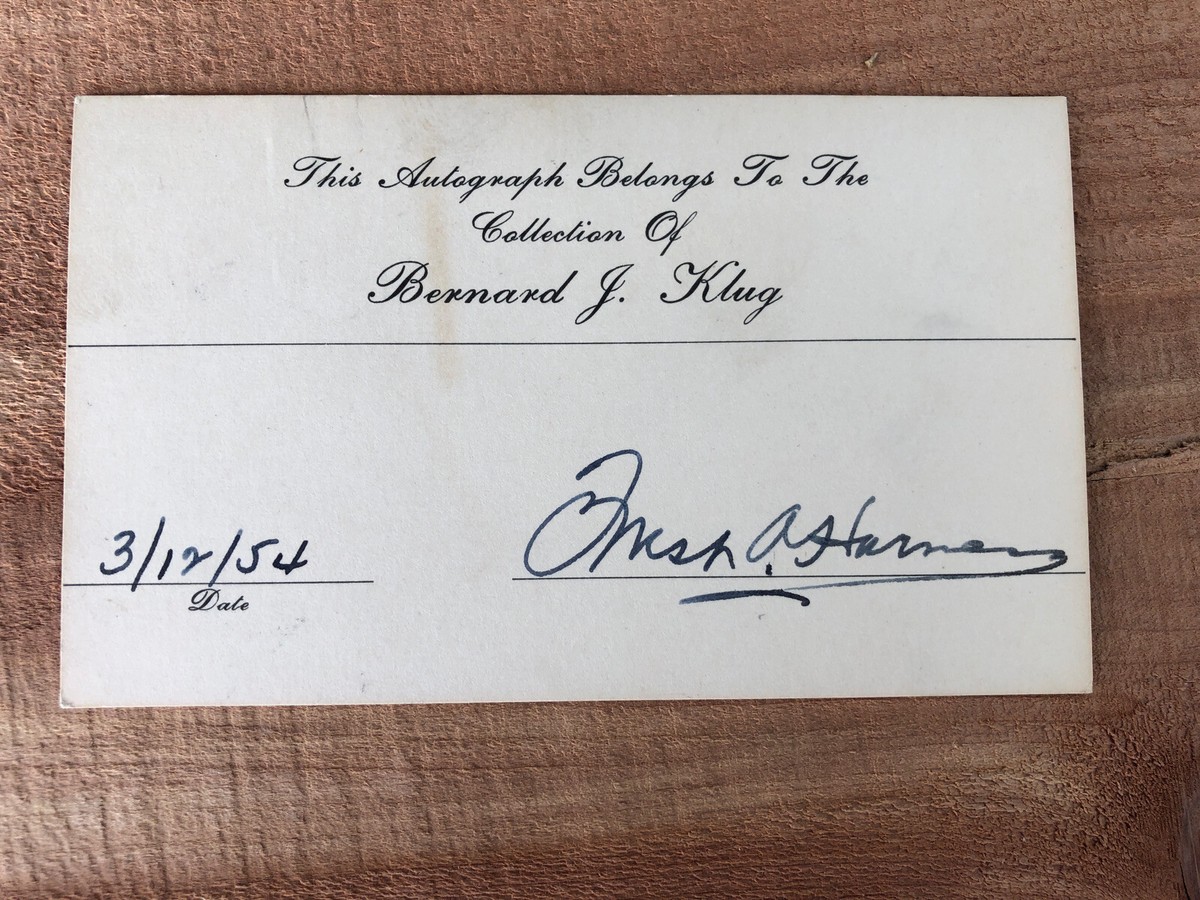 This Autograph Belongs To The
Collection Of
Bernard J. Klug
3/12/54
Forest A. Harness
Date